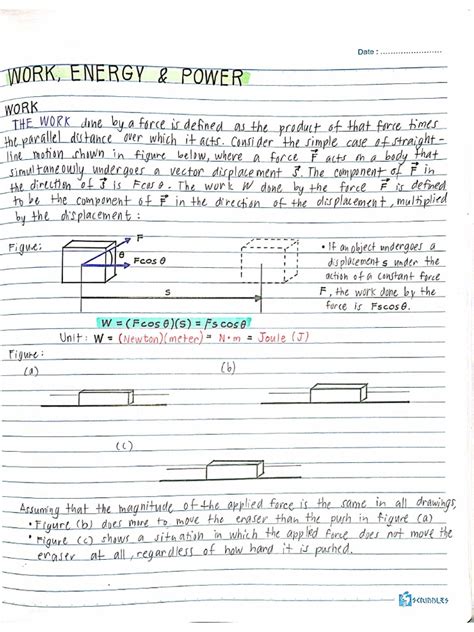 Date : ..........................
WORK, ENERGY & POWER
WORK
THE WORK done by a force is defined as the product of that force times
the parallel distance over which it acts. Consider the simple case of straight-
line motion shown in figure below, where a force F⃗ acts on a body that
simultaneously undergoes a vector displacement s⃗. The component of F⃗ in
the direction of s⃗ is Fcos θ. The work W done by the force F⃗ is defined
to be the component of F⃗ in the direction of the displacement, multiplied
by the displacement :
Figure:
F
θ
Fcos θ
s
• If an object undergoes a
displacement s under the
action of a constant force
F, the work done by the
force is Fscosθ.
W = (Fcos θ)(s) = Fs cos θ
Unit: W = (Newton)(meter) = N·m = Joule (J)
Figure:
(a)
(b)
(c)
Assuming that the magnitude of the applied force is the same in all drawings,
• Figure (b) does more to move the eraser than the push in figure (a)
• Figure (c) shows a situation in which the applied force does not move the
eraser at all, regardless of how hard it is pushed.
SCRIBBLES